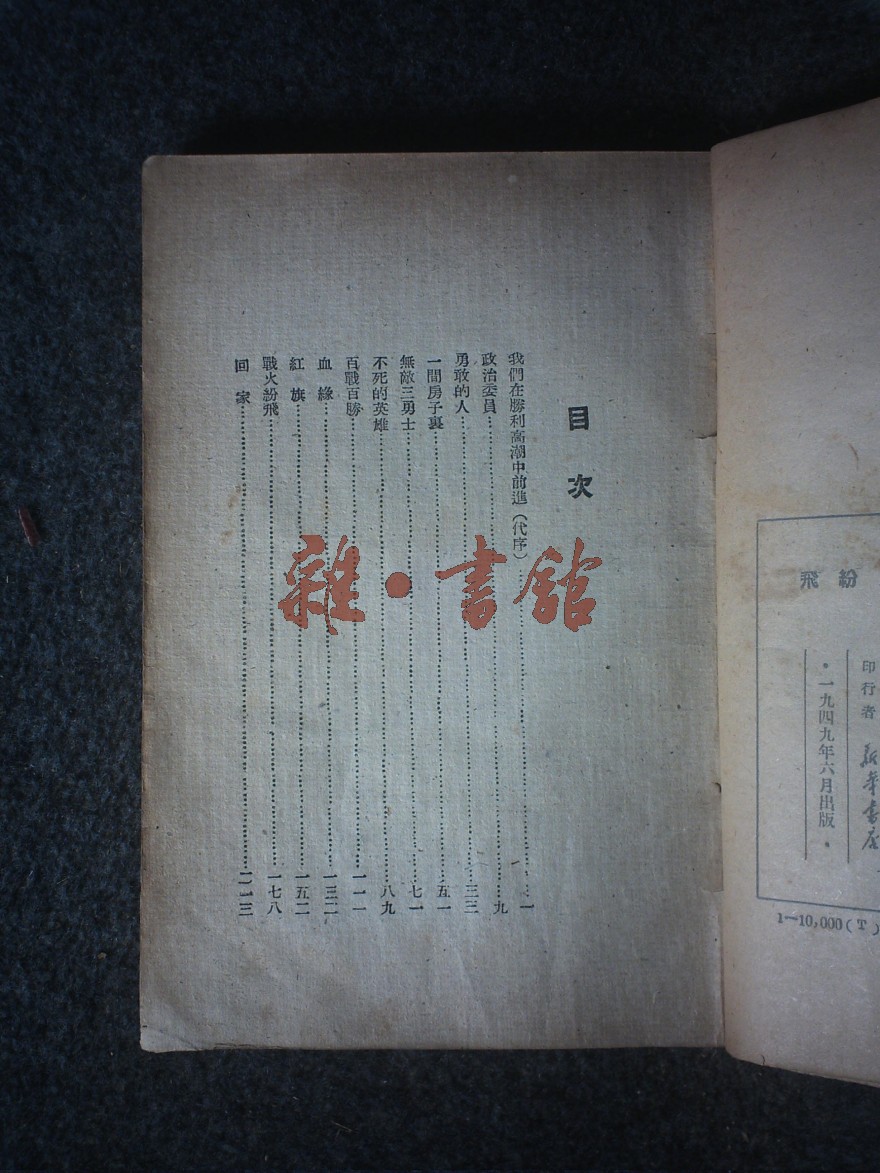 目次
我們在勝利高潮中前進（代序）……一
政治委員……九
勇敢的人……三三
一間房子裏……五一
無敵三勇士……七一
不死的英雄……八九
百戰百勝……一一一
血緣……一三二
紅旗……一五二
戰火紛飛……一七八
回家……二一三
雜·書館
紛飛
印行者 新華書店
·一九四九年六月出版·
1—10,000(T)